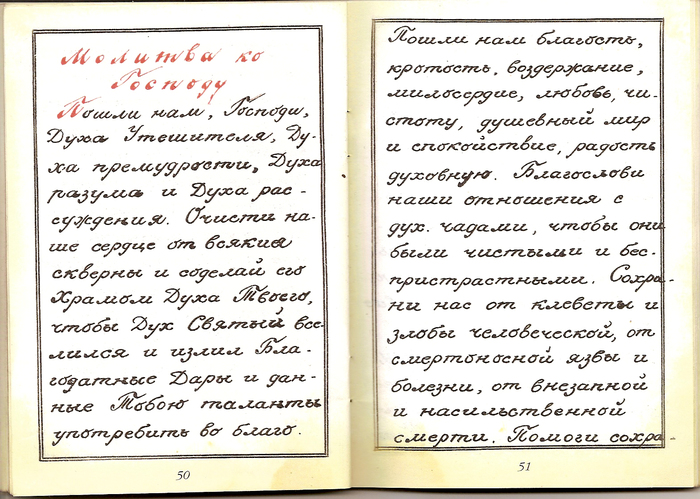 Молитва ко
Господу
Пошли нам, Господи,
Духа Утешителя, Ду-
ха премудрости, Духа
разума и Духа рас-
суждения. Очисти на-
ше сердце от всякия
скверны и соделай его
Храмом Духа Твоего,
чтобы Дух Святый все-
лился и излил Бла-
годатные Дары и дан-
ные Тобою таланты
употребить во благо.
50
Пошли нам благость,
кротость, воздержание,
милосердие, любовь, чи-
стоту, душевный мир
и спокойствие, радость
духовную. Благослови
наши отношения с
дух. чадами, чтобы они
были чистыми и бес-
пристрастными. Сохра-
ни нас от клеветы и
злобы человеческой, от
смертоносной язвы и
болезни, от внезапной
и насильственной
смерти. Помоги сохра-
51